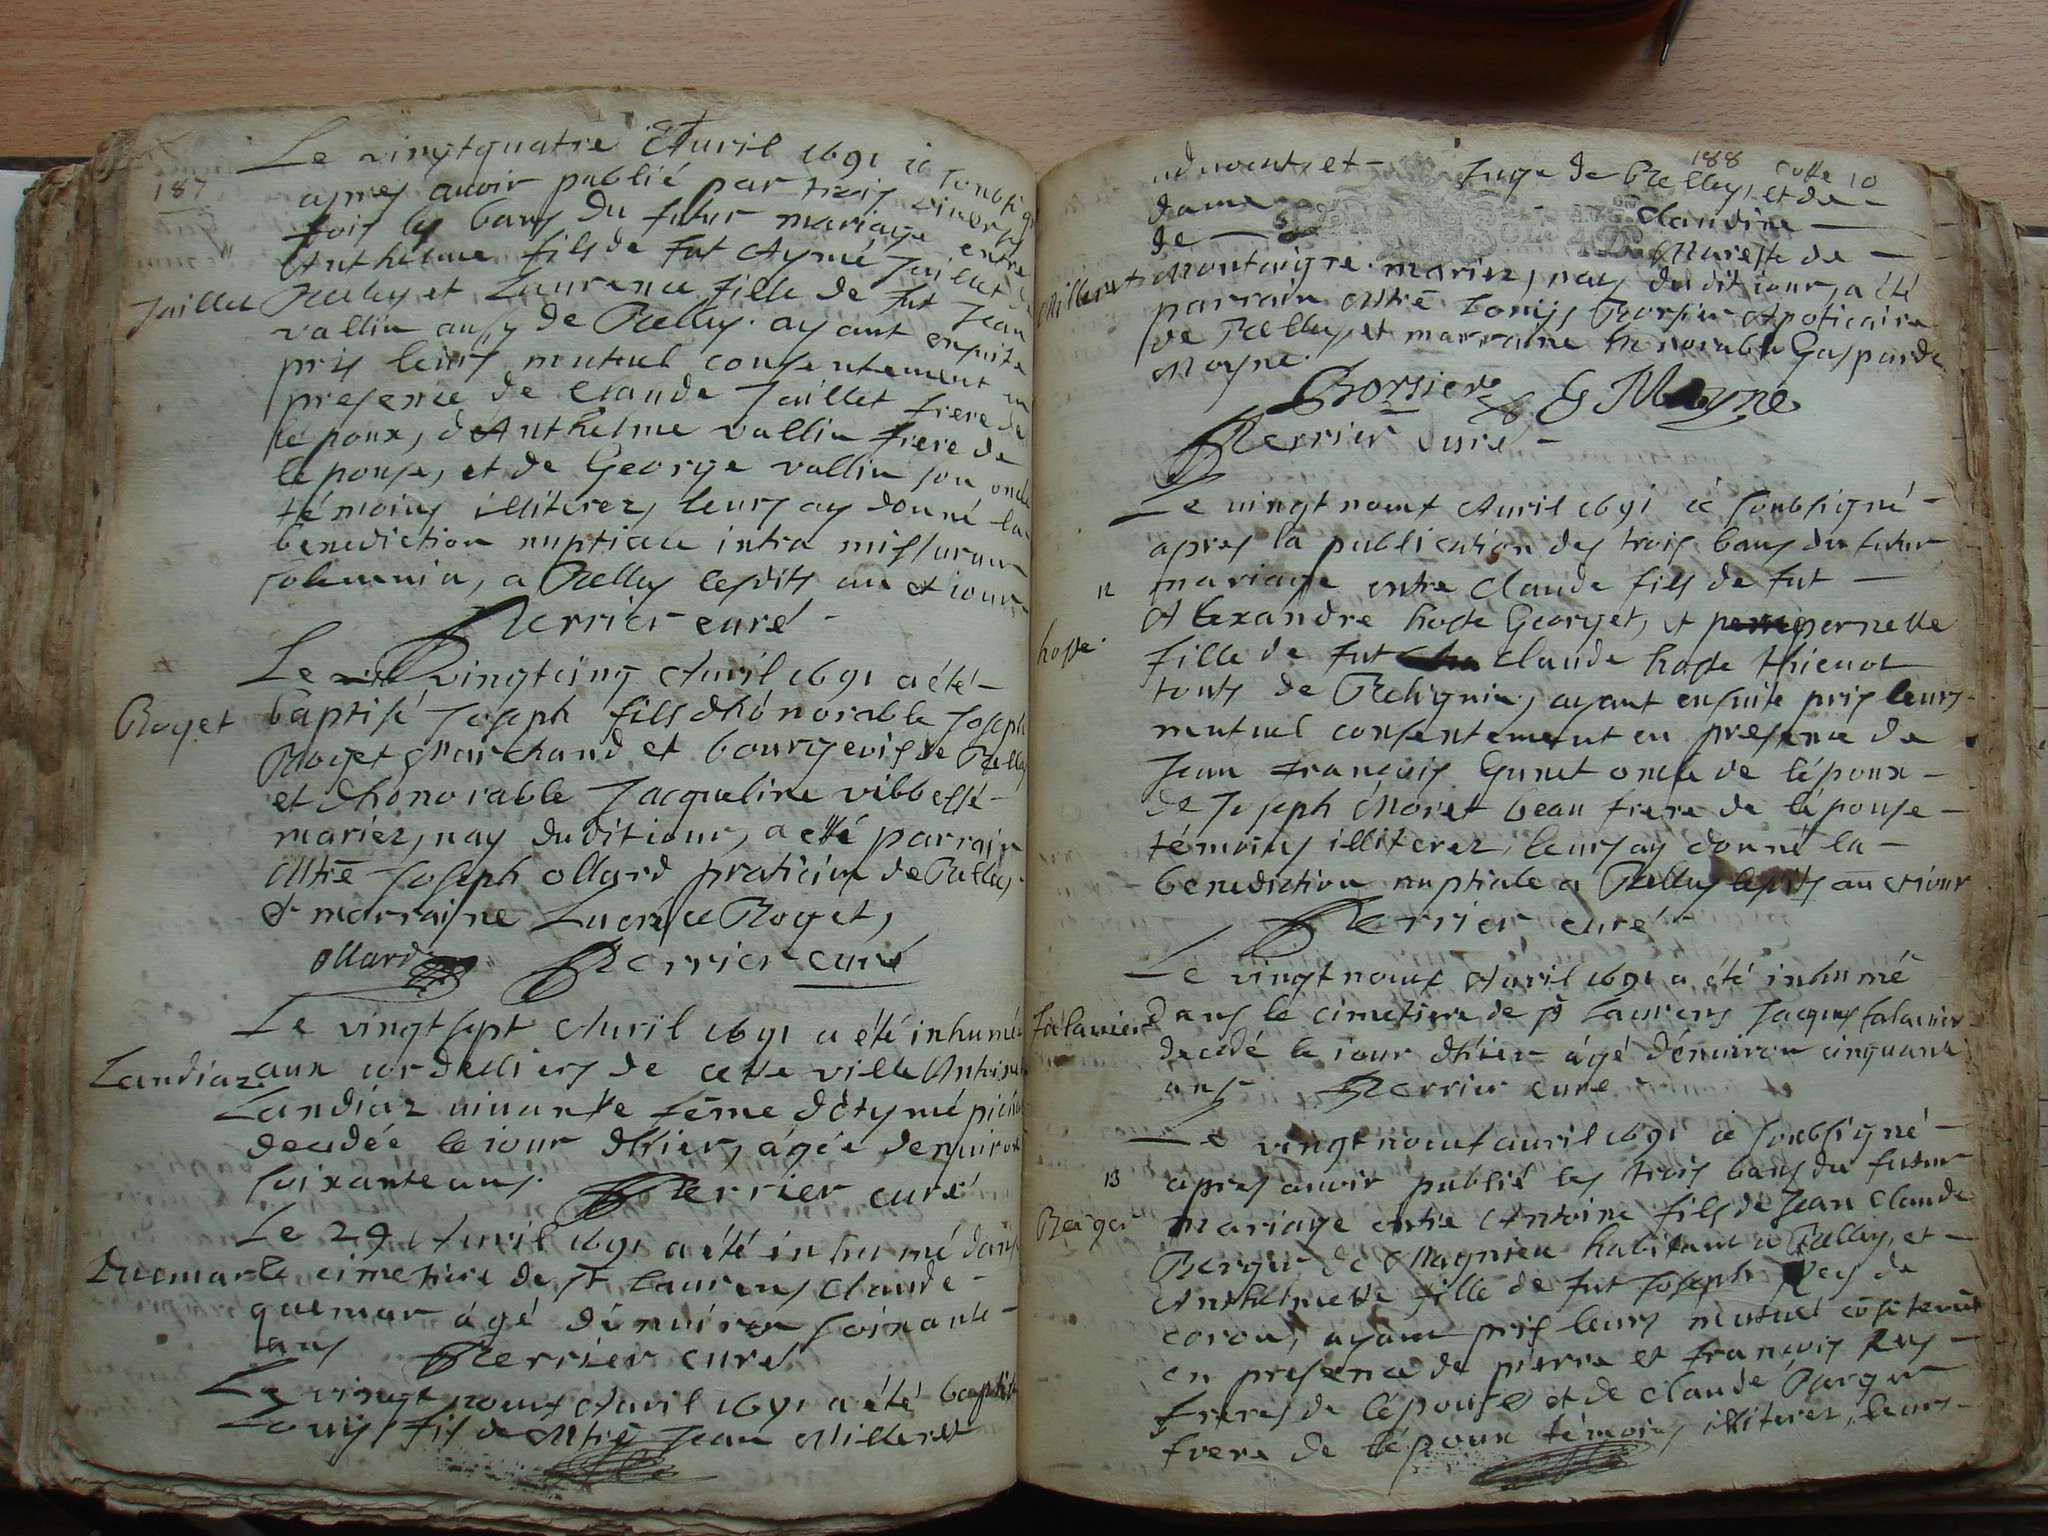 187
Le vingtquatre Auril 1691 ie soubsigné
apres auoir publié par trois diuerses
fois les bans du futur mariage entre
Anthelme fils de fut Aymé Juillet de
Juillet
Belley et Laurence fille de fut Jean
vallin aussy de Belley. ayant ensuite
pris leurs mutuel consentement en
presence de Claude Juillet frere de
lépoux, dAnthelme vallin frere de
lépouse, et de George vallin son oncle
témoins illiterez, leurs ay donné la
benediction nuptiale intra missarum
solemnia, a Belley lesdits an et iour
Perrier curé
Le vingtcinq Auril 1691 a été
Roget
baptisé Joseph fils dhonorable Joseph
Roget marchand et bourgeois de Belley
et dhonorable Jacqueline
mariez, nay dudit iour, a été parrain
Mtrē Joseph ollard praticien de Belley
& marraine Lucresse Roget,
ollard Perrier curé
Le vingt sept Auril 1691 a été inhumée
Landiaz
aux cordelliers de cette ville Antoinette
Landiaz viuante fēme dAymé
decedée le iour dhier, agée denuiron
soixante ans. Perrier curé
Le 29 Auril 1691 a été inhumé dans
le cimetiere de st laurens Claude
guemar agé dénuiron soixante
ans Perrier curé
Le vingt noeuf Auril 1691 a été baptisé
Louys fils de Mtrē Jean Milleret
188
Cotte 10
aduocat, et Juge de Belley, et de
dame Claudine
de Mareste de
Milleret
Montaigre mariez, nay dudit iour, a été
parrain Mtrē Louys Borsier Apoticaire
de Belley, et marraine honorable Gasparde
Moyne.
Borsier G Moyne
Perrier curé
Le vingt noeuf Auril 1691 ie soubsigné
apres la publication des trois bans du futur
12
mariage entre Claude fils de fut
Alexandre hoste Georget, et pernette
hoste
fille de fut Claude hoste thienot
touts de ayant ensuite pris leurs
mutuel consentement en presence de
Jean françois Gunet oncle de lépoux
de Joseph Moret beau frere de lépouse
témoins illiterez, leurs ay donné la
benediction nuptiale a Belley lesdits an et iour
Perrier curé
Le vingt noeuf Auril 1691 a été inhumé
falauier
dans le cimetiere de st laurens Jacques falauier
decedé le iour dhier agé dénuiron cinquante
ans Perrier curé
Le vingt noeuf auril 1691 ie soubsigné
13
apres auoir publié les trois bans du futur
Berger
mariage entre Antoine fils de Jean Claude
Berger de Magnieu habitant a Belley, et
Anthelmette fille de fut Joseph Rey de
coron, ayant pris leurs mutuel cōsitemēt
en presence de pierre et françois Rey
freres de lépouse et de claude Berger
frere de lépoux témoins illiterez, leurs